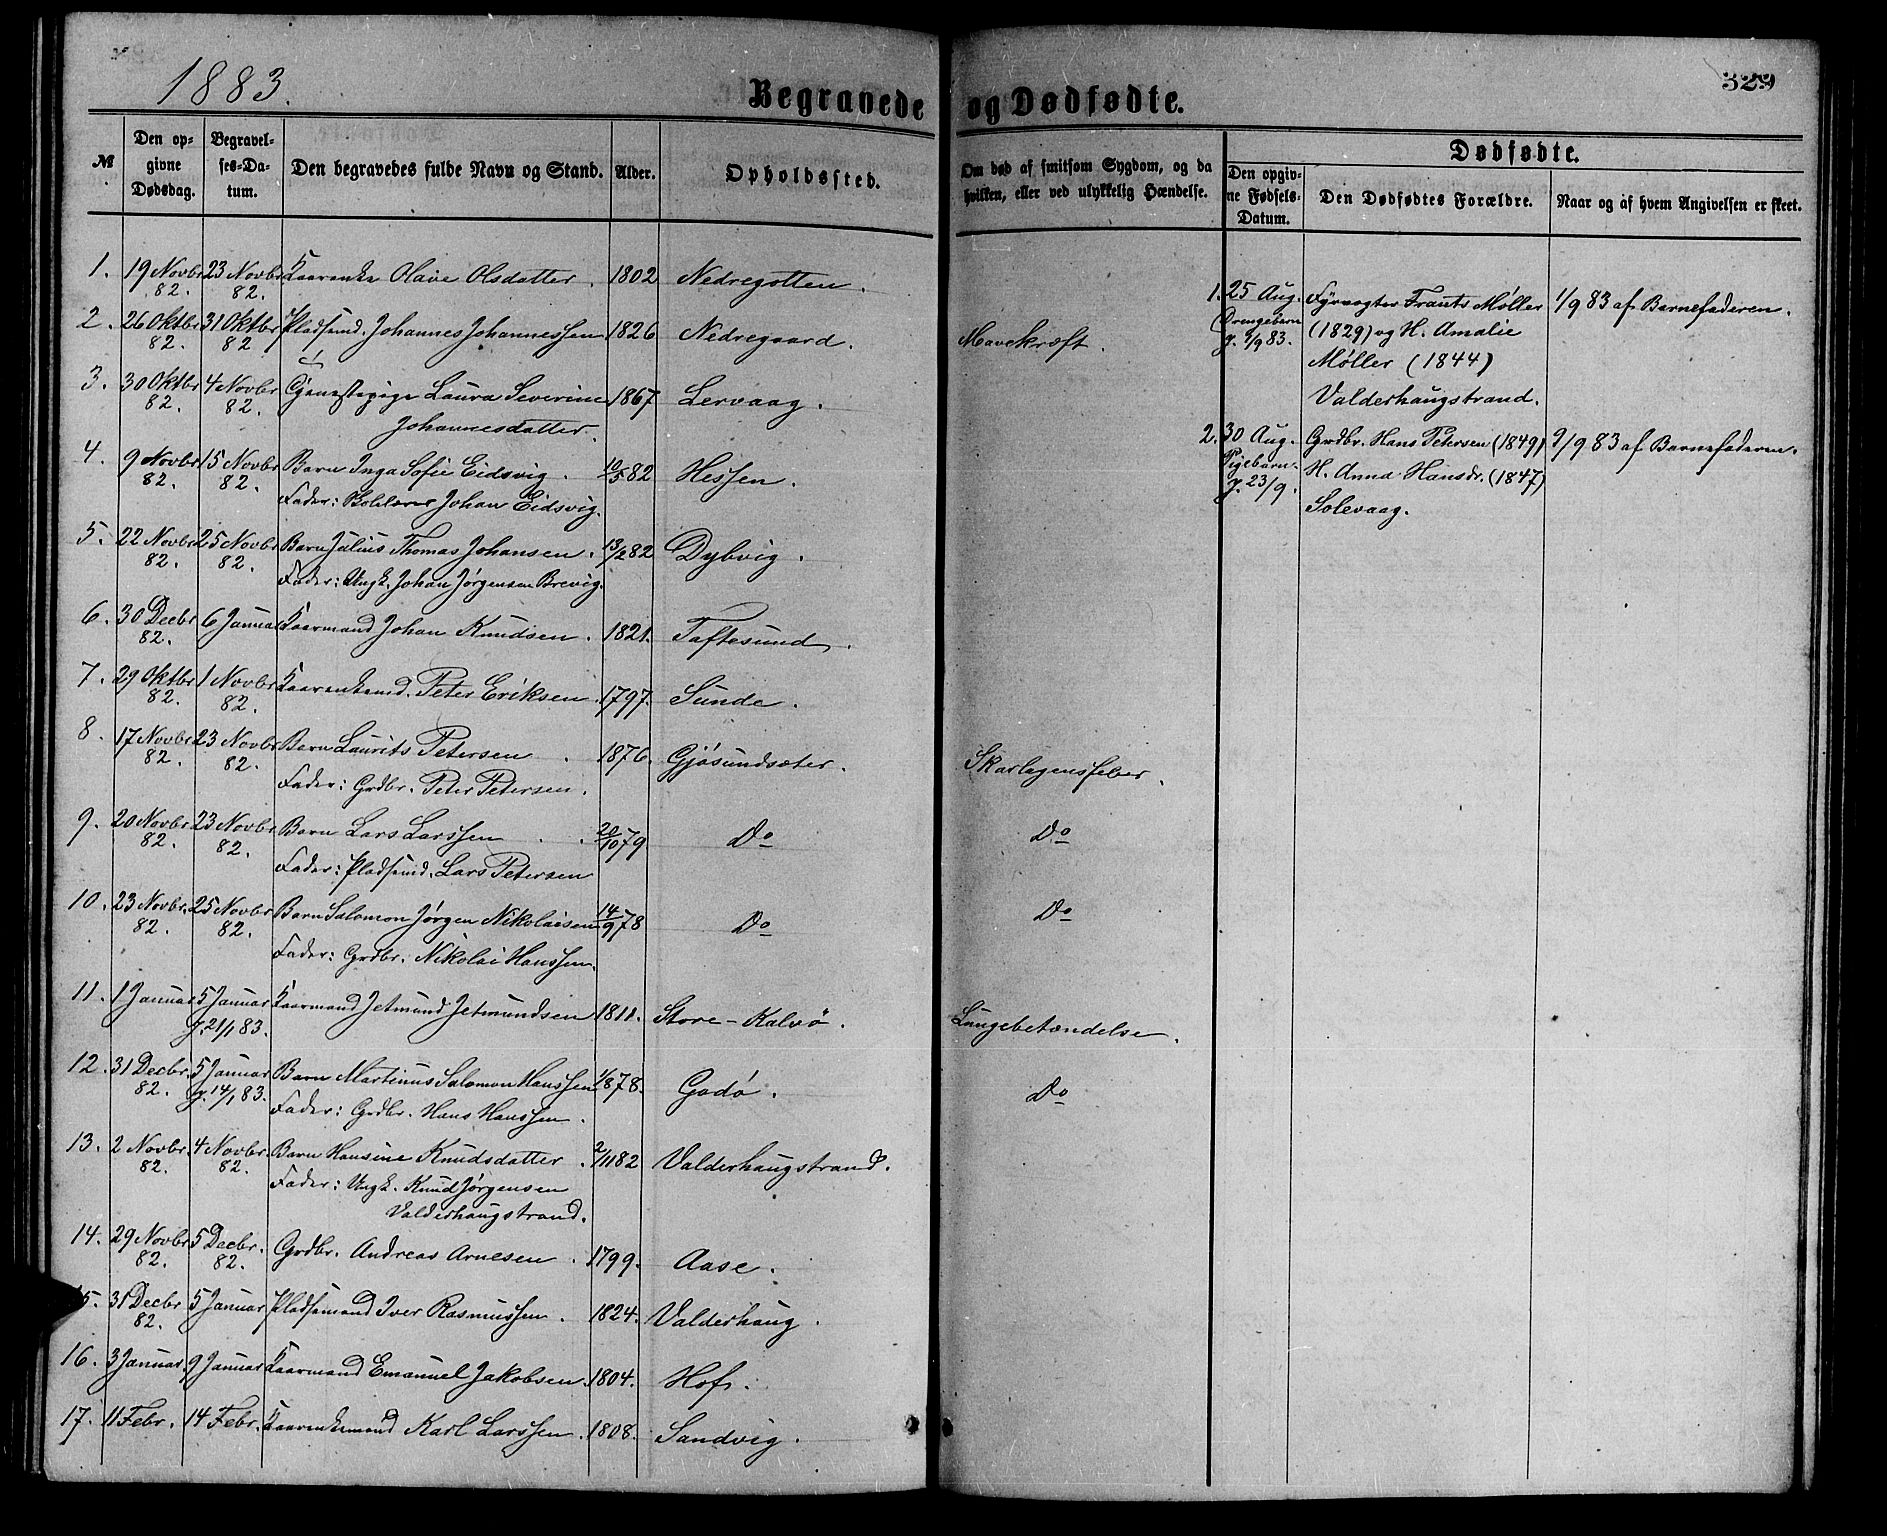 1883.
Begravede og Dødfødte.
329
№
Den opgivne Dødsdag.
Begravelses-Datum.
Den begravedes fulde Navn og Stand.
Alder.
Opholdssted.
Om død af smitsom Sygdom, og da hvilken, eller ved ulykkelig Hændelse.
Dødfødte.
Den opgivne Fødsels-Datum.
Den Dødfødtes Forældre.
Naar og af hvem Angivelsen er skeet.
1. 19 Novbr 82. 23 Novbr 82. Kaarenke Olave Olsdatter. 1802 Nedregotten.
2. 26 Oktbr 82. 31 Oktbr 82 Pladsmd. Johannes Johannessen 1826 Nedregaard. Mavekræft.
3. 30 Oktbr 82. 4 Novbr 82. Tjenestepige Laura Severine 1867 Lervaag.
Johannesdatter.
4. 9 Novbr 82. 15 Novbr 82. Barn Inga Sofie Eidsvig. 10/5 82 Hessen.
Fader: Johan Eidsvig.
5. 22 Novbr 82. 25 Novbr 82. Barn Julius Thomas Johansen. 13/2 82 Dybvig.
Fader: Ungk. Johan Jørgensen Brevig.
6. 30 Decbr 82. 6 Januar Kaarmand Johan Knudsen. 1821. Taftesund.
7. 29 Oktbr 82. 1 Novbr 82. Kaarenkemd. Peter Eriksen. 1797. Sunde.
8. 17 Novbr 82. 23 Novbr 82. Barn Laurits Petersen. 1876. Gjøsundsæter. Skarlagensfeber.
Fader: Grdbr. Peter Petersen.
9. 20 Novbr 82. 23 Novbr 82. Barn Lars Larssen. 20/10 79 Do Do
Fader: Pladsmd. Lars Petersen
10. 23 Novbr. 82. 25 Novbr 82. Barn Salomon Jørgen Nikolaisen 14/9 78 Do Do
Fader: Grdbr. Nikolai Hanssen.
11. 1 Januar 5 Januar g. 21/1 83. Kaarmand Jetmund Jetmundsen 1811. Store-Kalvö. Lungebetændelse.
12. 31 Decbr. 82. 5 Januar g. 14/1 83. Barn Martinus Salomon Hanssen 1/8 78. Godø. Do
Fader: Grdbr. Hans Hanssen.
13. 2 Novbr. 82. 4 Novbr. 82. Barn Hansine Knudsdatter. 2/11 82 Valderhaugstrand.
Fader: Ungk. Knud Jørgensen
Valderhaugstrand.
14. 29 Novbr 82. 5 Decbr. 82. Grdbr. Andreas Arnesen. 1799. Aase.
15. 31 Decbr 82. 5 Januar Pladsmand Iver Rasmussen. 1824. Valderhaug.
16. 3 Januar. 9 Januar Kaarmand Emanuel Jakobsen. 1804. Hof.
17. 11 Febr. 14 Febr. Kaarenkemand Karl Larssen. 1808. Sandvig.
1. 25 Aug. Fyrvogter Frants Møller 1/9 83 af Barnefaderen.
Drengebarn (1829) og H. Amalie
g. 2/9 83. Møller (1844)
Valderhaugstrand.
2. 30 Aug. Grdbr. Hans Petersen (1849) 9/9 83 af Barnefaderen.
Pigebarn. H. Anna Hansdr. (1847)
g. 23/9. Solevaag.